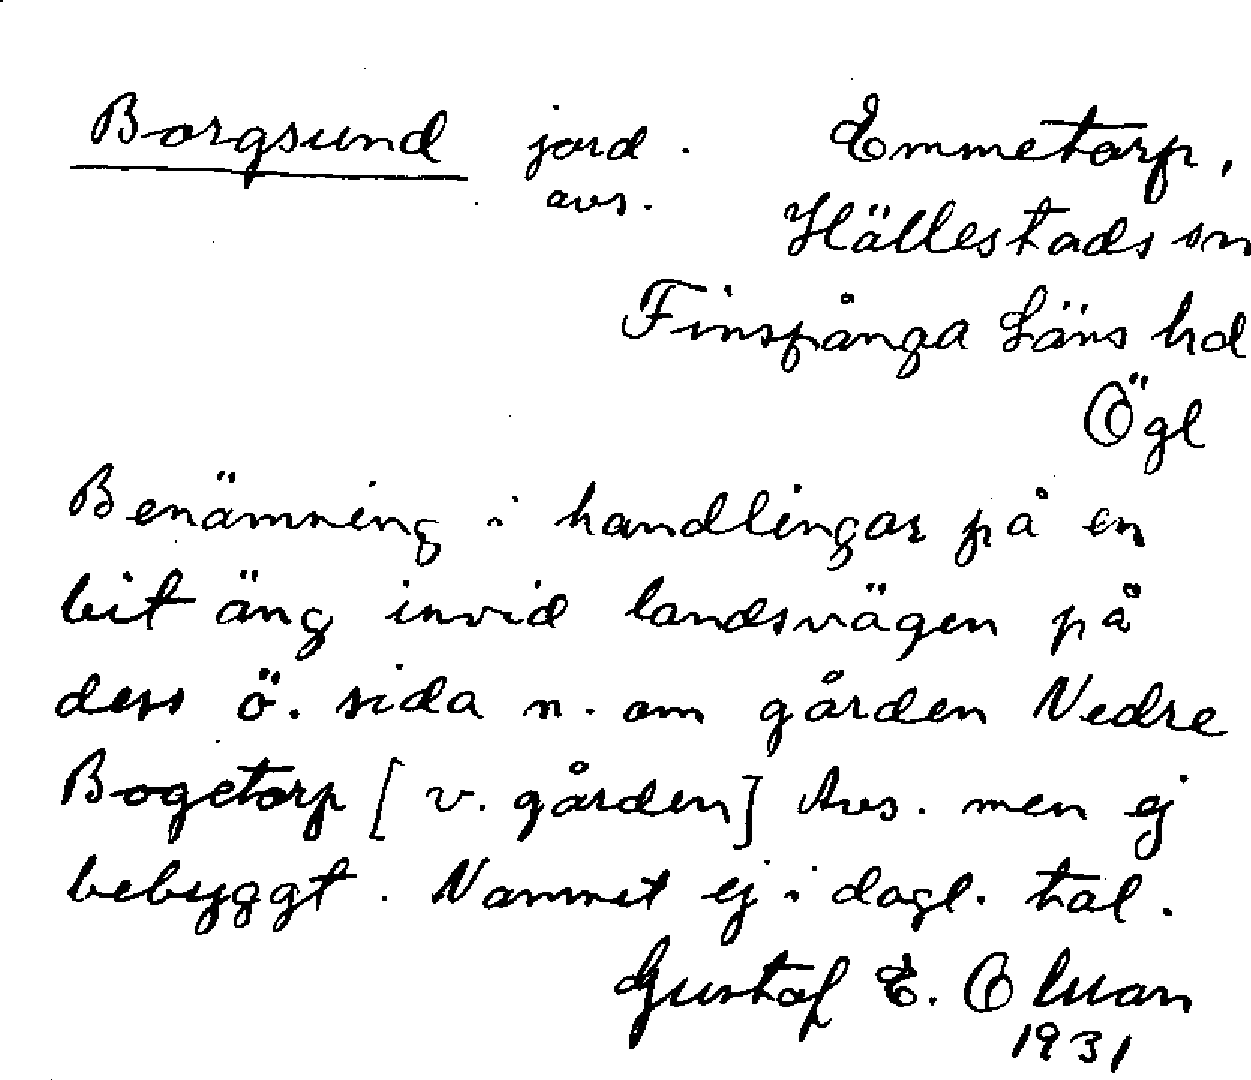 Borgsund jord. Emmetorp,
avs. Hällestads sn
Finspånga Läns hd
Ögl
Benämning i handlingar på en
bit äng invid landsvägen på
dess ö. sida n. om gården Nedre
Bogetorp [v. gården] Avs. men ej
bebyggt. Namnet ej i dagl. tal.
Gustaf E.
1931